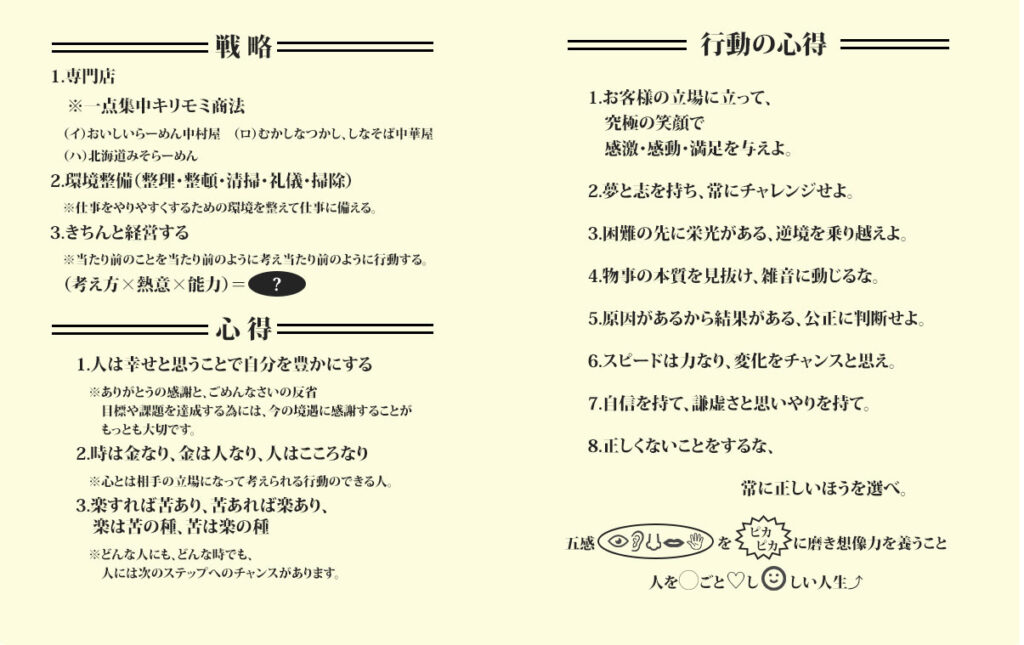 戦略
1.専門店
※一点集中キリモミ商法
(イ)おいしいらーめん中村屋 (ロ)むかしなつかし、しなそば中華屋
(ハ)北海道みそらーめん
2.環境整備(整理・整頓・清掃・礼儀・掃除)
※仕事をやりやすくするための環境を整えて仕事に備える。
3.きちんと経営する
※当たり前のことを当たり前のように考え当たり前のように行動する。
(考え方×熱意×能力)=?
心得
1.人は幸せと思うことで自分を豊かにする
※ありがとうの感謝と、ごめんなさいの反省
目標や課題を達成する為には、今の境遇に感謝することが
もっとも大切です。
2.時は金なり、金は人なり、人はこころなり
※心とは相手の立場になって考えられる行動のできる人。
3.楽すれば苦あり、苦あれば楽あり、
楽は苦の種、苦は楽の種
※どんな人にも、どんな時でも、
人には次のステップへのチャンスがあります。
行動の心得
1.お客様の立場に立って、
究極の笑顔で
感激・感動・満足を与えよ。
2.夢と志を持ち、常にチャレンジせよ。
3.困難の先に栄光がある、逆境を乗り越えよ。
4.物事の本質を見抜け、雑音に動じるな。
5.原因があるから結果がある、公正に判断せよ。
6.スピードは力なり、変化をチャンスと思え。
7.自信を持て、謙虚さと思いやりを持て。
8.正しくないことをするな、
常に正しいほうを選べ。
五感を ピカピカに磨き想像力を養うこと
人を◯ごと♡し☺しい人生⤴